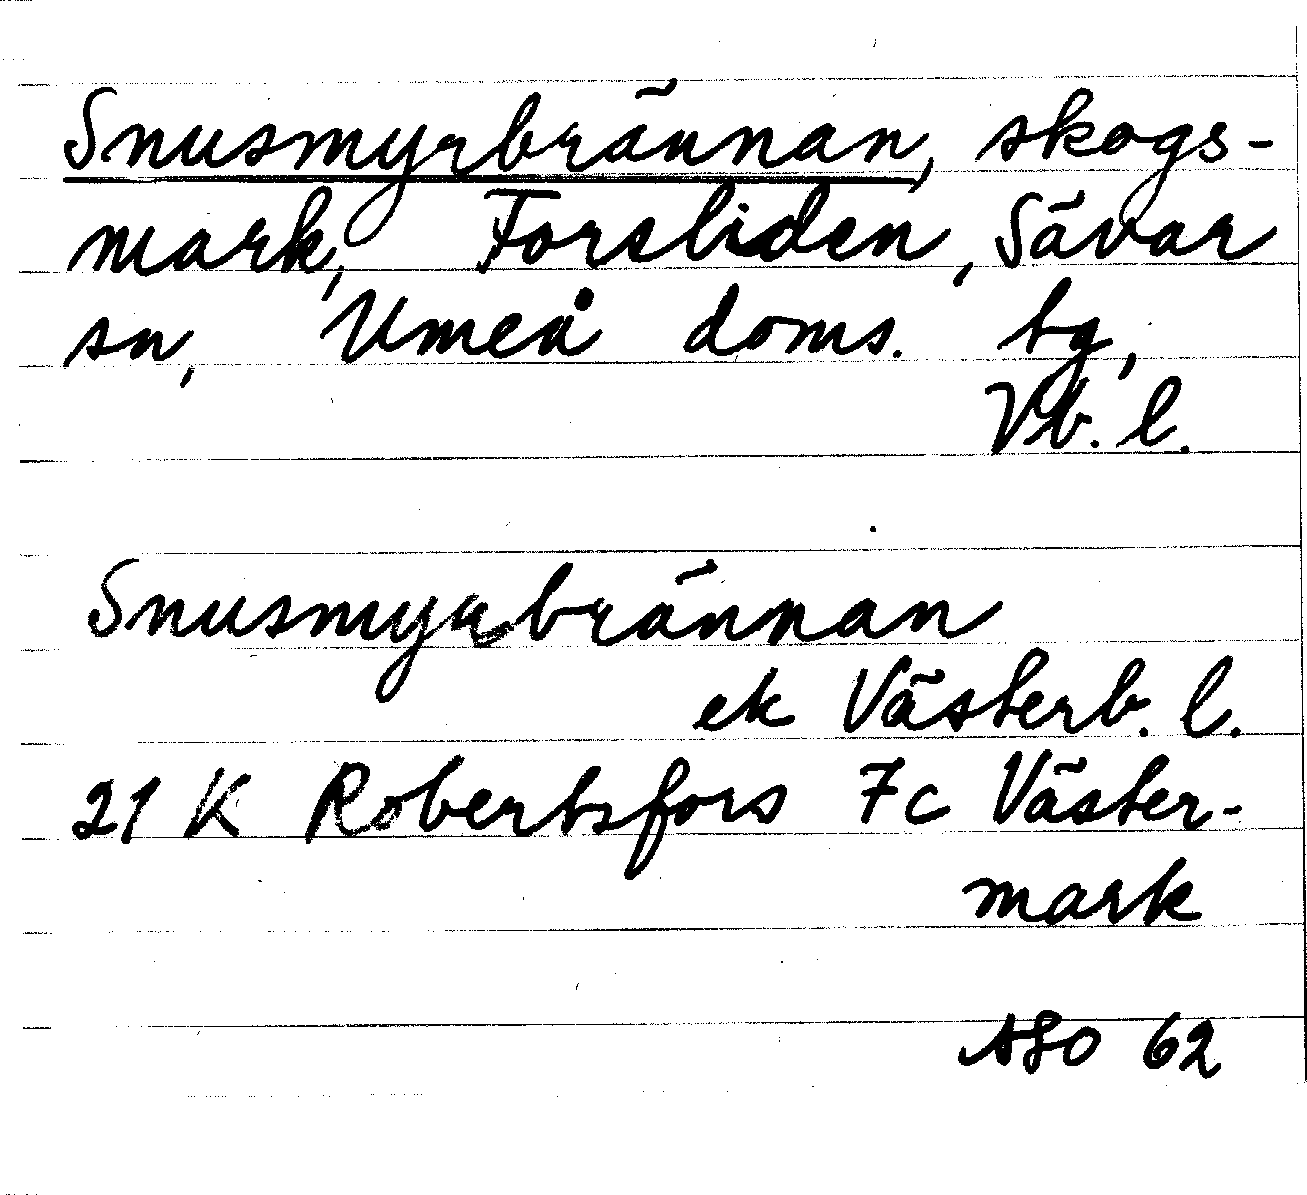 Snusmyrbrännan, skogs-
mark, Forsliden, Sävar
sn, Umeå doms. tg,
Vb. l.
Snusmyrbrännan
ek Västerb. l.
21 K Robertsfors 7c Väster-
mark
62